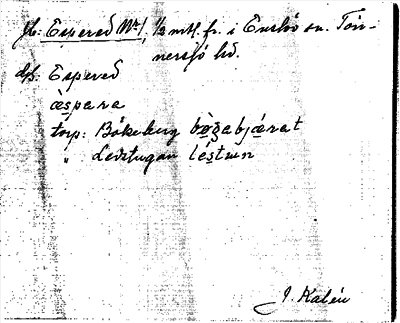 fb: Espered No 1, 1/2 mtl. fr. i Enslöv sn. Tön-
nersjö hd.
d/s: Espered
àspara
torp: Bökeberg bøgabjærat
" Ledstugan léstun
J. Kalén